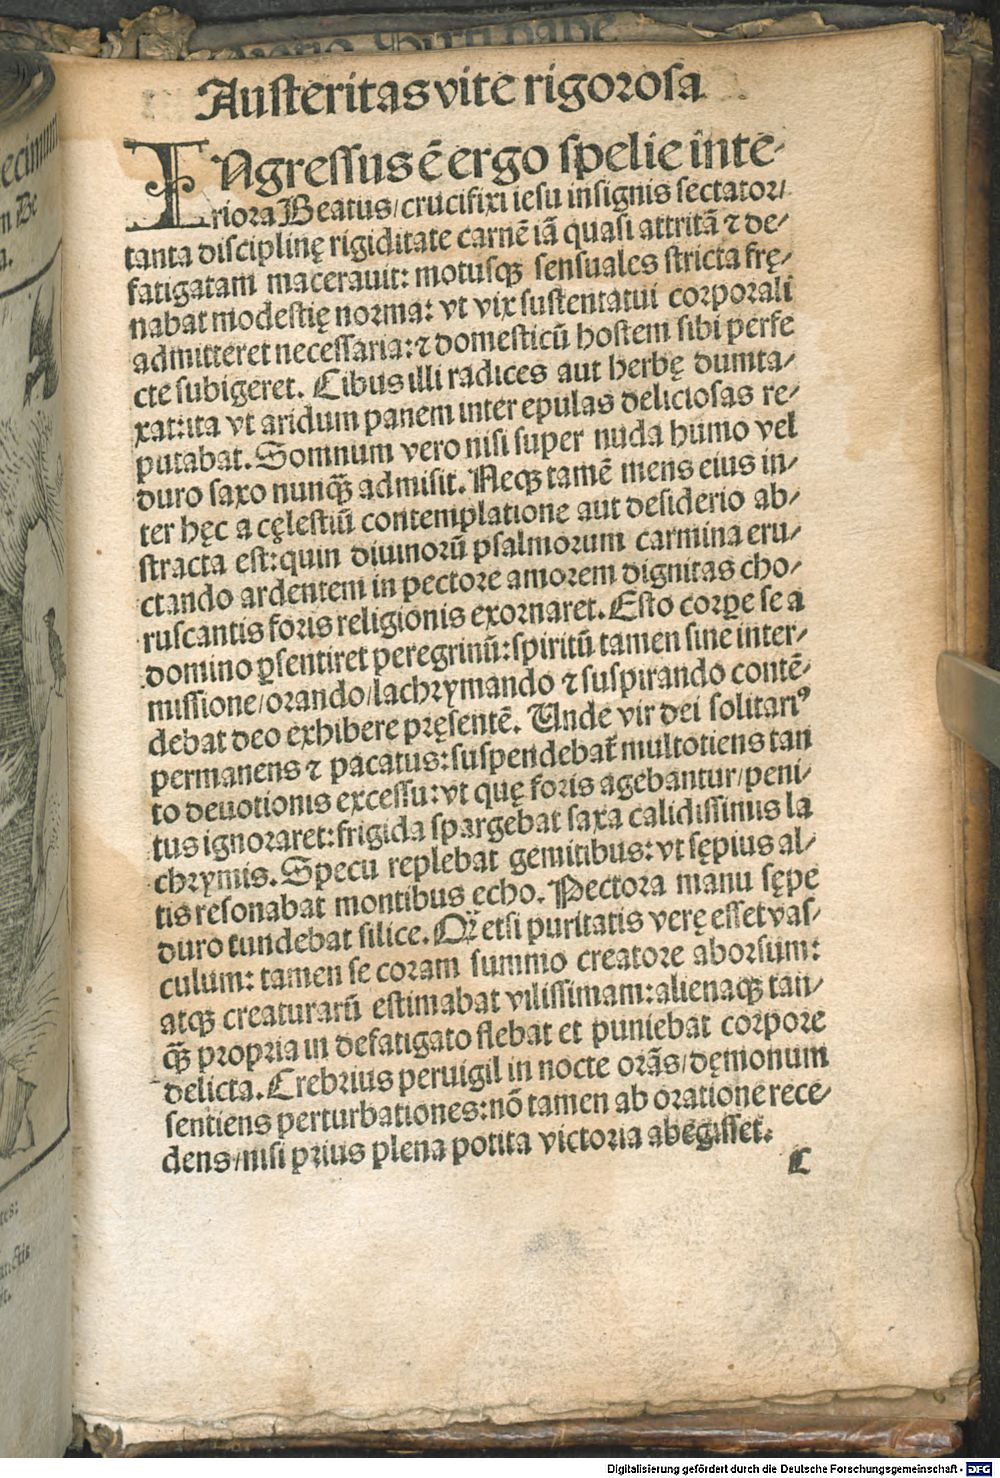 Auſteritas vite rigoroſa
INgreſſus ē ergo ſpelie inte-
riora Beatus/crucifixi ieſu inſignis ſectator/
tanta diſciplinę rigiditate carnē iā quaſi attritā ⁊ de/
fatigatam macerauit: motuſqꝫ ſenſuales ſtricta frę/
nabat modeſtię norma: vt vix ſuſtentatui corporali
admitteret neceſſaria:⁊ domeſticū hoſtem ſibi perfe
cte ſubigeret. Cibus illi radices aut herbę dumta/
xat:ita vt aridum panem inter epulas delicioſas re/
putabat. Somnum vero niſi ſuper nuda humo vel
duro ſaxo nunqꝫ̄ admiſit. Neqꝫ tamē mens eius in/
ter hęc a cęleſtiū contemplatione aut deſiderio ab/
ſtracta eſt:quin diuinorū pſalmorum carmina eru/
ctando ardentem in pectore amorem dignitas cho/
ruſcantis foris religionis exornaret. Eſto corꝑe ſe a
domino ꝑſentiret peregrinū:ſpiritū tamen ſine inter/
miſſione/orando/lachrymando ⁊ ſuſpirando contē/
debat deo exhibere pręſentē. Unde vir dei ſolitariꝰ
permanens ⁊ pacatus:ſuſpendebat᷑ multotiens tan
to deuotionis exceſſu:vt quę foris agebantur/peni/
tus ignoraret:frigida ſpargebat ſaxa calidiſſimis la
chrymis. Specu replebat gemitibus:vt ſępius al/
tis reſonabat montibus echo. Pectora manu ſępe
duro tundebat ſilice. Qꝛ etſi puritatis verę eſſet vaſ/
culum: tamen ſe coram ſummo creatore aborſum:
atqꝫ creaturarū eſtimabat viliſſimam:alienaqꝫ tan/
qꝫ̄ propria in defatigato flebat et puniebat corpore
delicta. Crebrius peruigil in nocte orās/dęmonum
ſentiens perturbationes:nō tamen ab oratione rece/
dens/niſi prius plena potita victoria abēgiſſet.
C
Digitalisierung gefördert durch die Deutsche Forschungsgemeinschaft - DFG